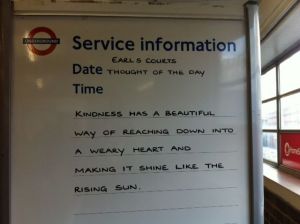 UNDERGROUND
Service information
EARLS COURTS
Date THOUGHT OF THE DAY
Time
KINDNESS HAS A BEAUTIFUL
WAY OF REACHING DOWN INTO
A WEARY HEART AND
MAKING IT SHINE LIKE THE
RISING SUN.